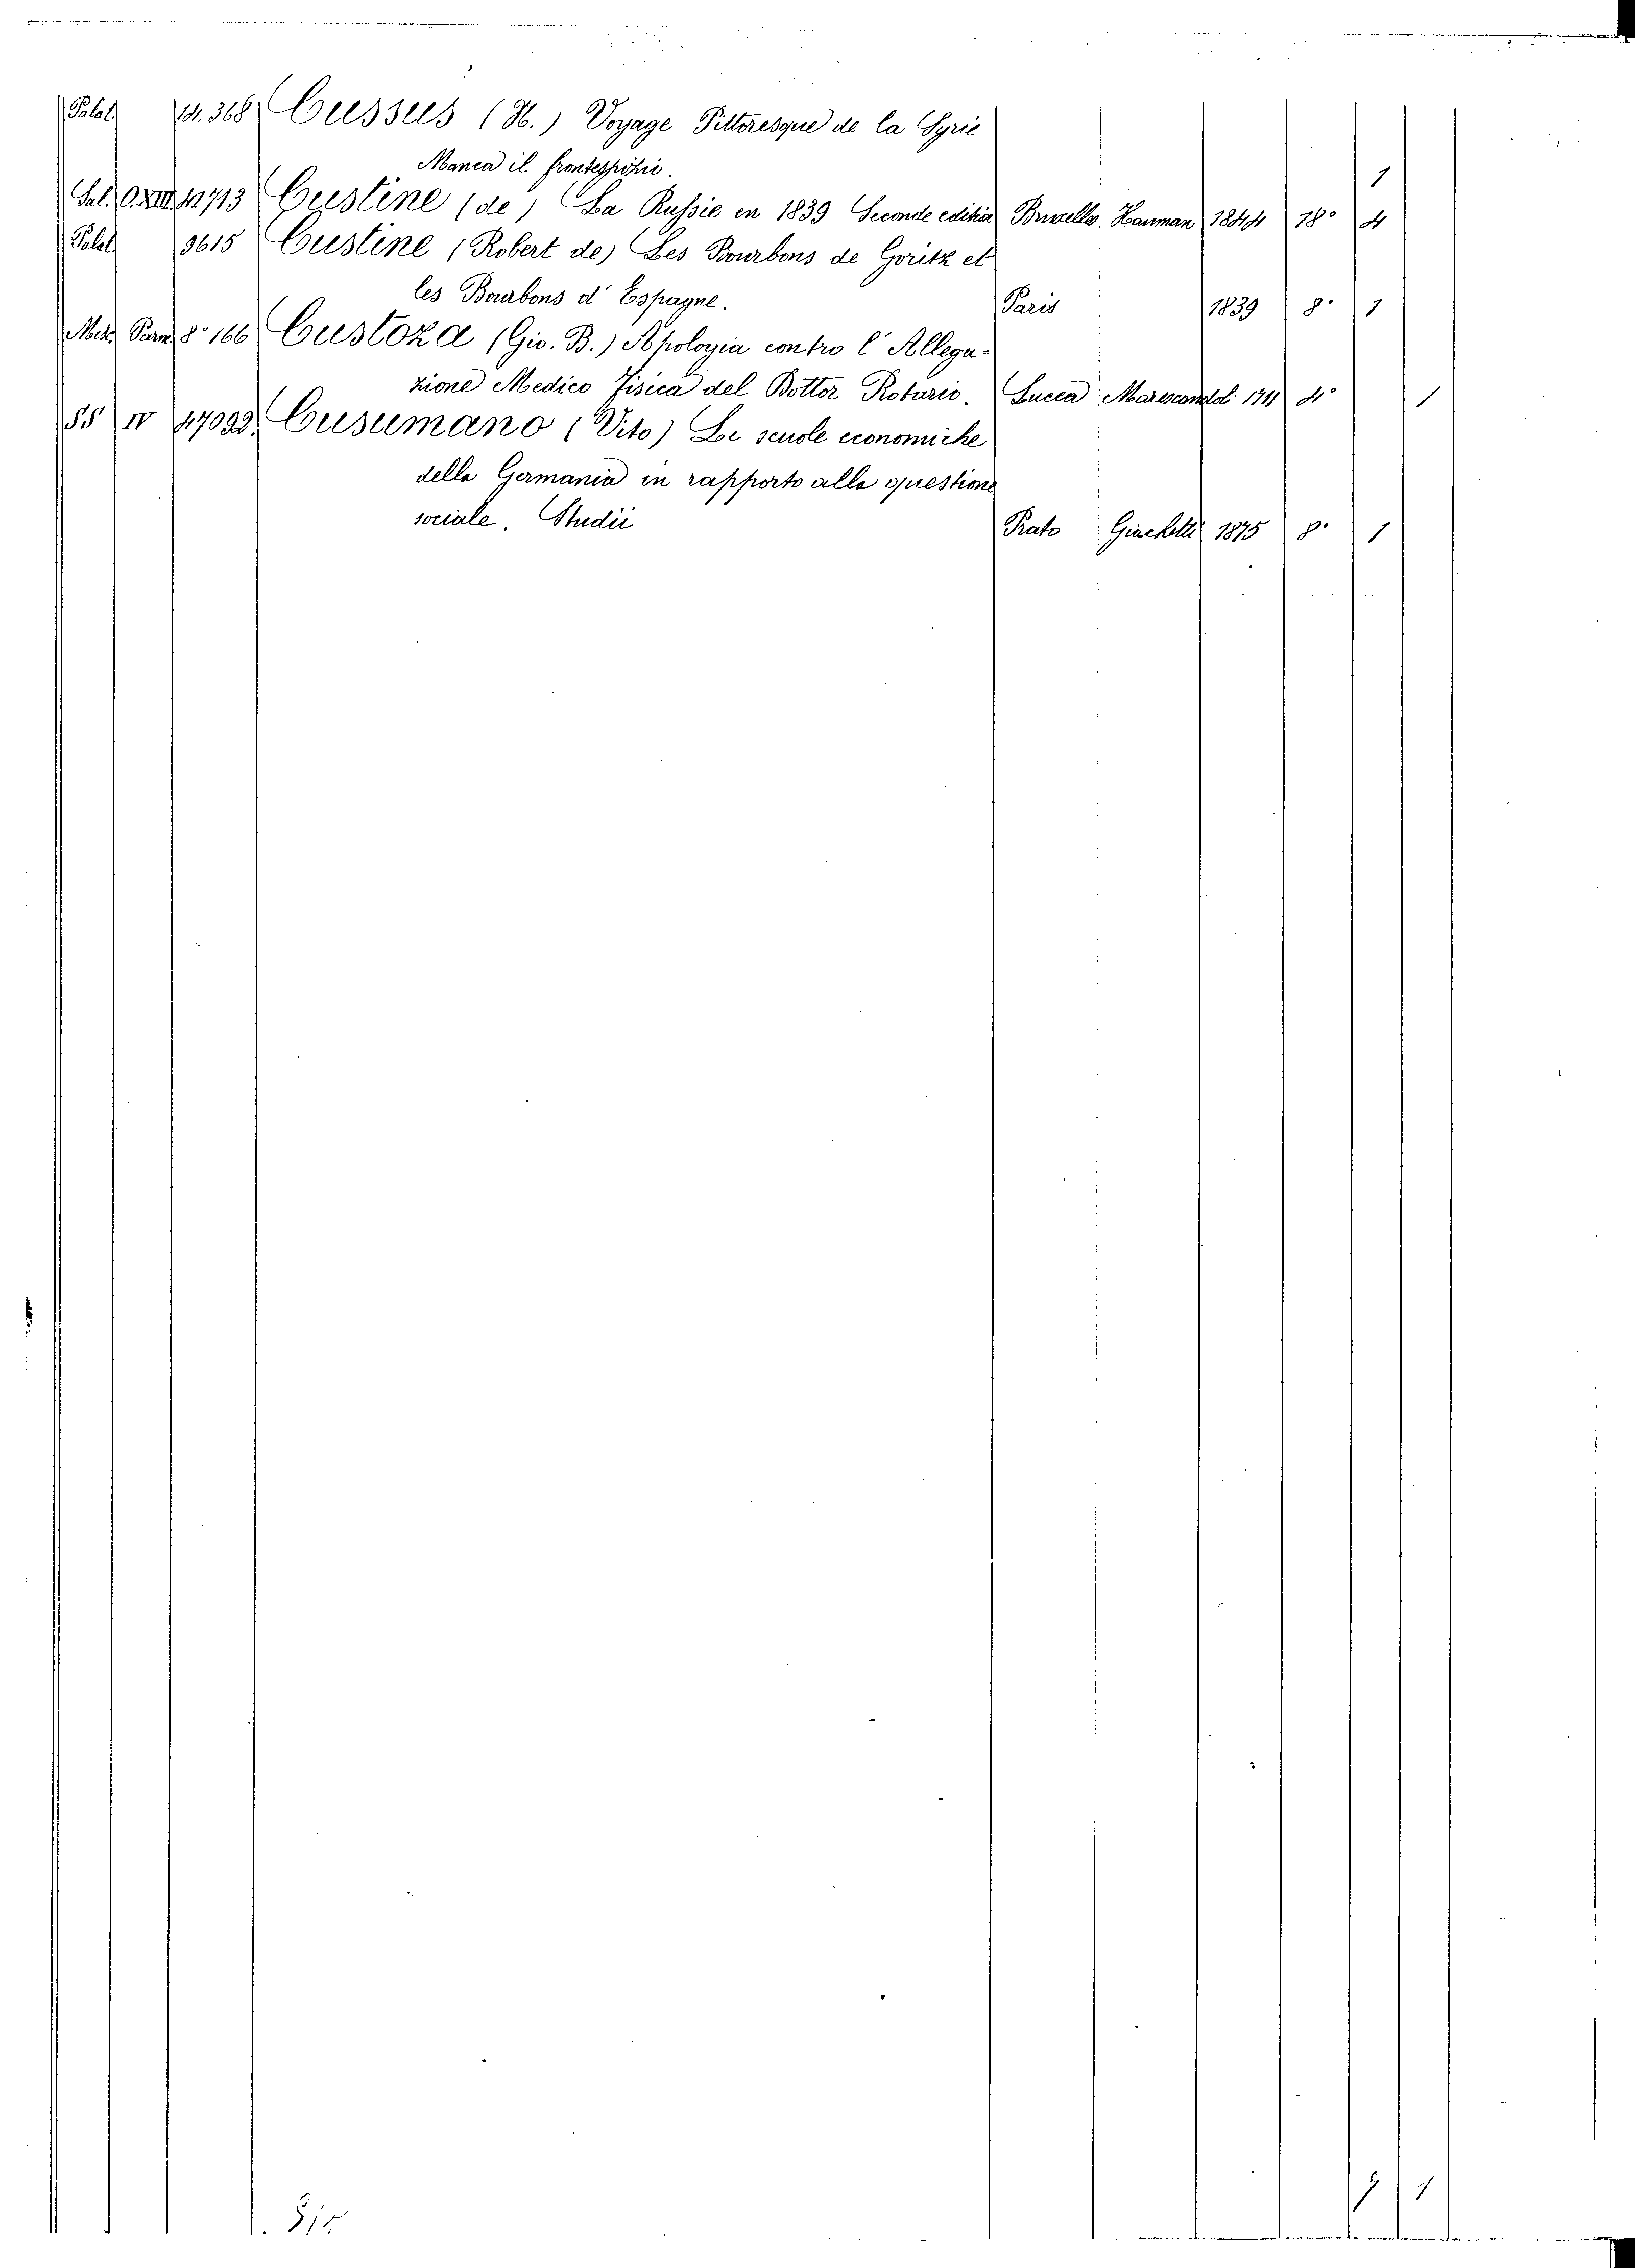 Palat. 11. 368 Cussus (H.) Voyage Pittoresque de la Syrie
Manca il frontespizio. 1
Sal. O.XIII. 11713 Custine (de) La Russie en 1839 Seconde edition Bruxelles. Hauman 1844 18° 4
Palat. 3615 Custine (Robert de) Les Bourbons de Goritz et
les Bourbons d'Espagne. Paris 1839 8° 1
Parm. 8° 166 Custoza (Gio. B.) Apologia contro l'Allega-
zione Medico Fisica del Dottor Rotario. Lucca Marescandoli 1711 4° 1
55 IV 47092. Cusumano (Vito) Le scuole economiche
della Germania in rapporto alla questione
sociale. Studii Prato Giachetti 1875 8° 1